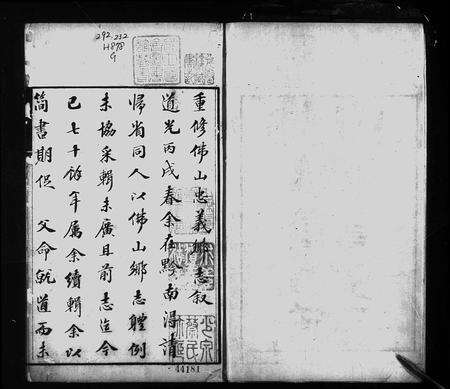 292.232
H878
G
重修佛山忠義鄉志叙
道光丙戌春余在黔南得請
歸省同人以佛山鄉志體例
未協采輯未廣且前志迄今
已七十餘年屬余續輯余以
簡書期促 父命就道而未
44181